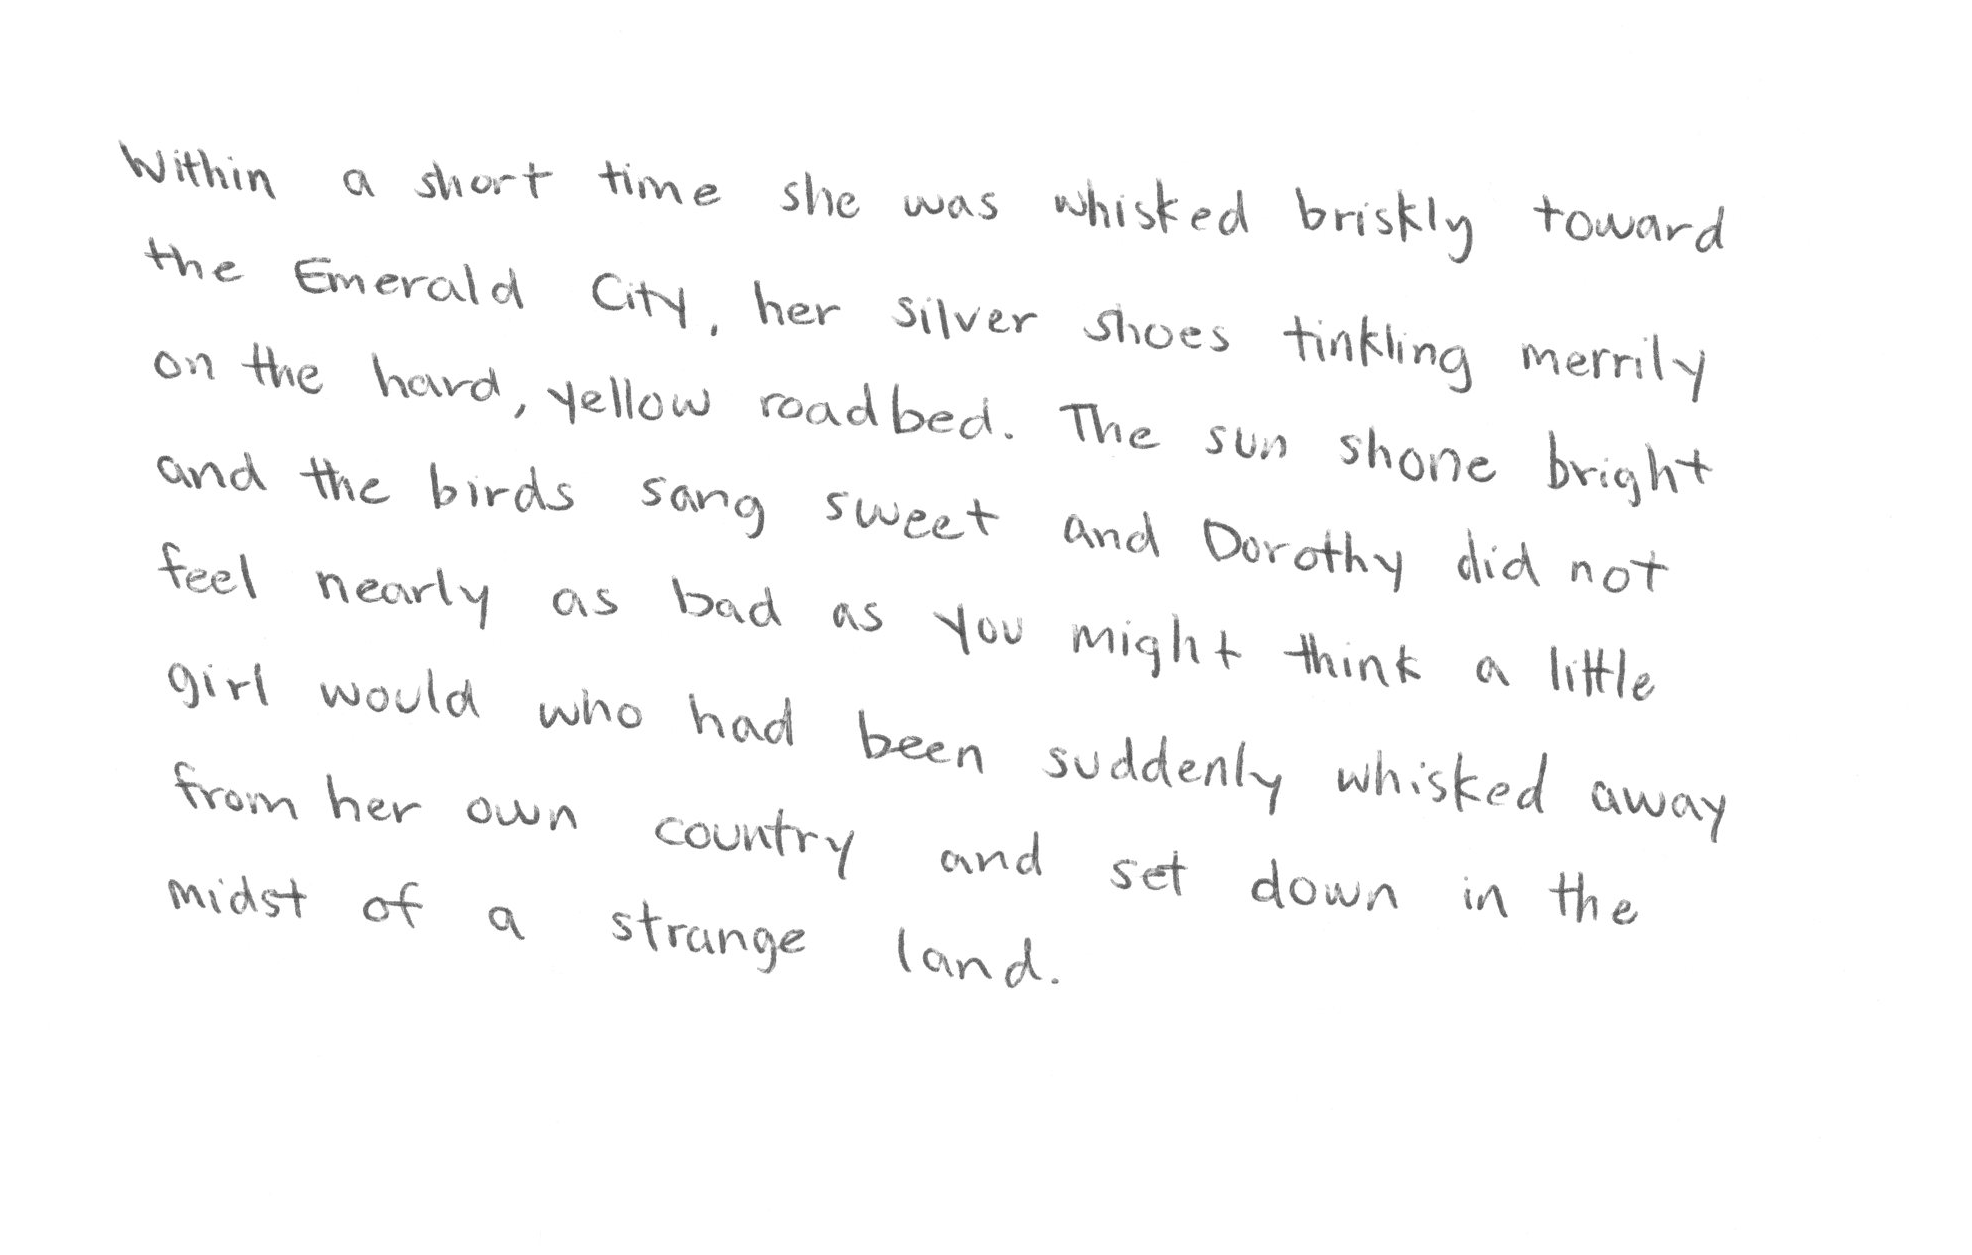 Within a short time she was whisked briskly toward
the Emerald City, her silver shoes tinkling merrily
on the hard, yellow roadbed. The sun shone bright
and the birds sang sweet and Dorothy did not
feel nearly as bad as you might think a little
girl would who had been suddenly whisked away
from her own country and set down in the
midst of a strange land.